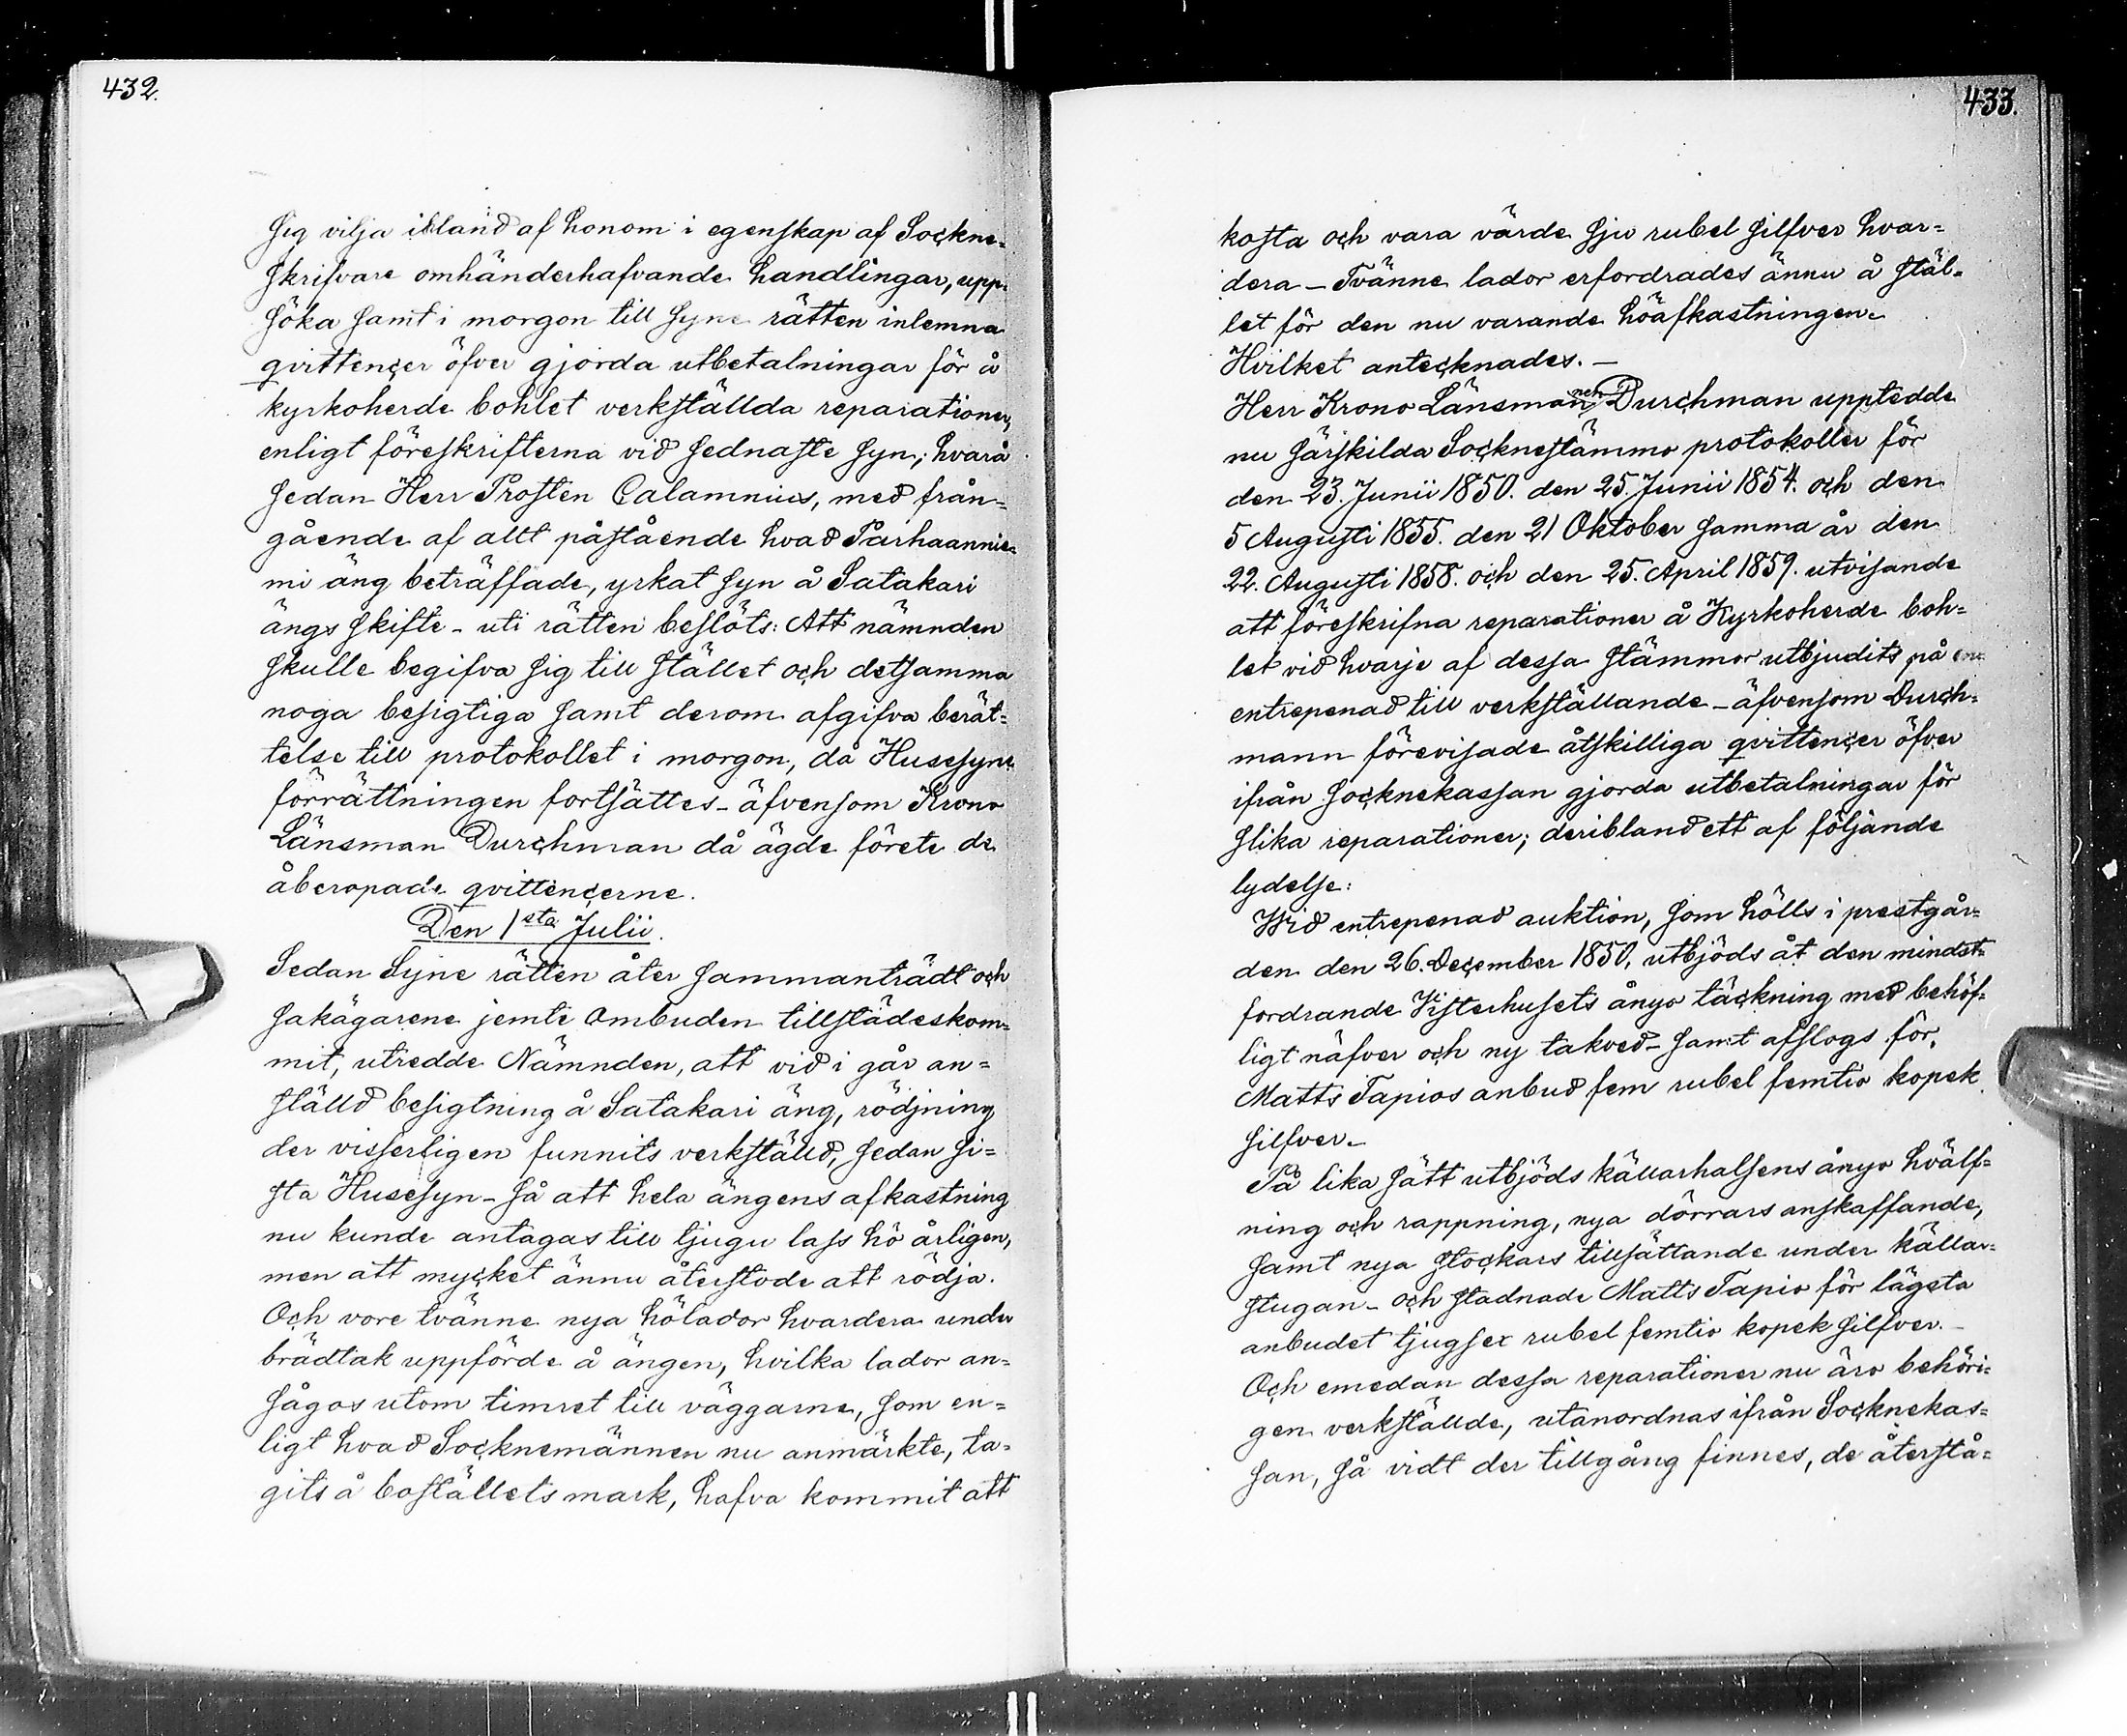 432.
sig vilja ibland af honom i egenskap af Sockne-
skrifvare omhänderhafvande handlingar, upp-
söka samt i morgon till Syne rätten inlemna
qvittencer öfver gjorda utbetalningar för å
kyrkoherde bohlet verkställda reparationer,
enligt föreskrifterna vid sednaste syn; hvarå
sedan Herr Prosten Calamnius, med från-
gående af allt påstående hvad Parhaannie-
mi äng beträffade, yrkat syn å Satakari
ängs skifte - uti rätten beslöts: Att nämnden
skulle begifva sig till stället och detsamma
noga besigtiga samt derom afgifva berät-
telse till protokollet i morgon, då Husesyns
förrättningen fortsättes - äfvensom Krono
Länsman Durchman då ägde förete de
åberopade qvittencerne.
Den 1sta Julii.
Sedan Syne rätten åter sammanträdt och
sakägarene jemte Ombuden tillstädeskom-
mit, utredde Nämnden, att vid i går an-
ställd besigtning å Satakari äng, rödjning
der visserligen funnits verkställd, sedan si-
sta Husesyn - så att hela ängens afkastning
nu kunde antagas till tjugu lass hö årligen,
men att mycket ännu återstode att rödja.
Och vore tvänne nya hölador hvardera under
brädtak uppförde å ängen, hvilka lador an-
sågos utom timret till väggarne, som en-
ligt hvad Socknemännen nu anmärkte, ta-
gits å boställets mark, hafva kommit att
433.
kosta och vara värde sju rubel silfver hvar-
dera - Tvänne lador erfordrades ännu å stäl-
let för den nu varande höafkastningen.
Hvilket antecknades. -
Herr Krono Länsmannen Durchman upptedde
nu särskilda Socknestämmo protokoller för
den 23. Junii 1850. den 25. Junii 1854. och den
5 Augusti 1855. den 21 Oktober samma år den
22. Augusti 1858. och den 25. April 1859. utvisande
att föreskrifna reparationer å Kyrkoherde boh-
let vid hvarje af dessa stämmor utbjudits på
entrepenad till verkställande - äfvensom Durch-
mann förevisade åtskilliga qvittencer öfver
ifrån socknekassan gjorda utbetalningar för
slika reparationer; deribland ett af följande
lydelse:
Wid entrepenad auktion, som hölls i prestgår-
den den 26. December 1850, utbjöds åt den mindst-
fordrande Visterhusets ånyo täckning med behöf-
ligt näfver och ny takved - samt afslogs för
Matts Tapios anbud fem rubel femtio kopek
silfver.
På lika sätt utbjöds källarhalsens ånyo hvälf-
ning och rappning, nya dörrars anskaffande,
samt nya stockars tillsättande under källar-
stugan - och stadnade Matts Tapio för lägsta
anbudet tjugsex rubel femtio kopek silfver. -
Och emedan dessa reparationer nu äro behöri-
gen verkställde, utanordnas ifrån Socknekas-
san, så vidt der tillgång finnes, de återstå-